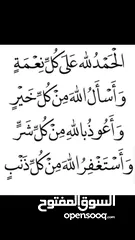 الْحَمْدُ لِلهِ عَلَى كُلِّ نِعْمَةٍ
وَأَسْأَلُ اللهَ مِنْ كُلِّ خَيْرٍ
وَأَعُوذُ بِاللهِ مِنْ كُلِّ شَرٍّ
وَأَسْتَغْفِرُ اللهَ مِنْ كُلِّ ذَنْبٍ
السوق المفتوح
opensooq.com